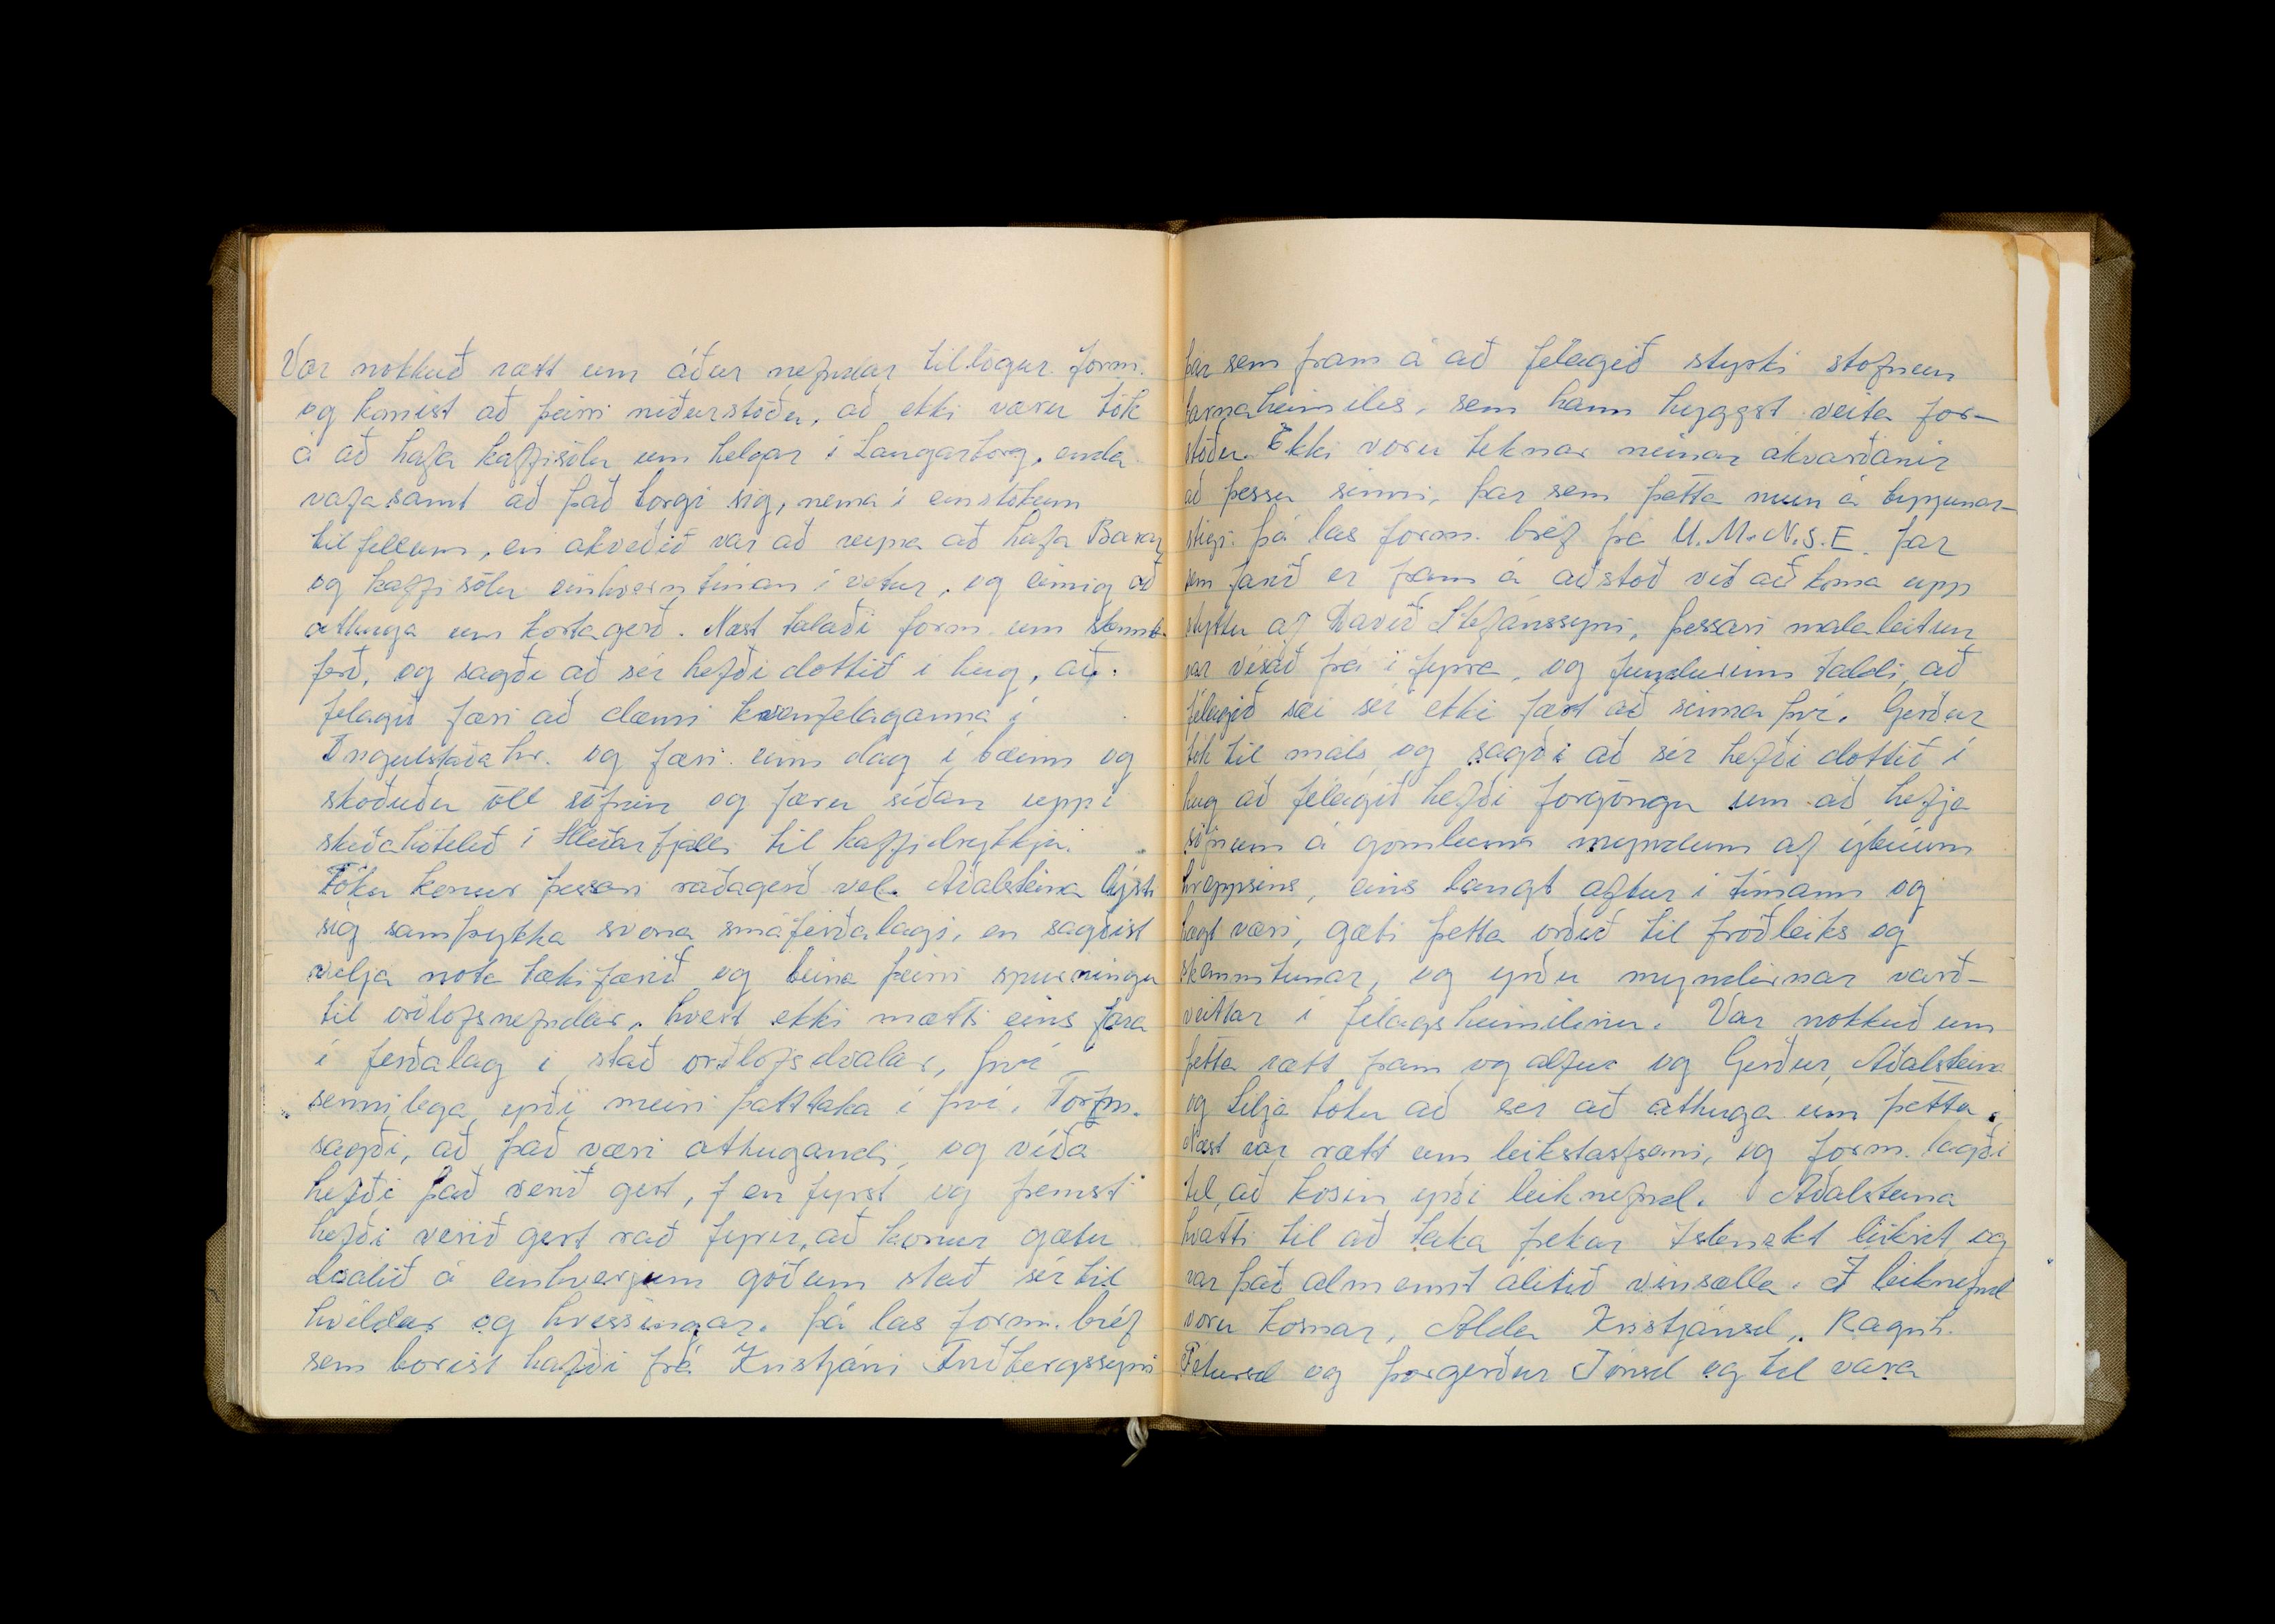 Var nokkuð rætt um áður nefndar tillögur form.
og komist að þeirri niðurstöðu, að ekki væru tök
á að hafa kaffisölu um helgar í Laugarborg, enda
vafasamt að það borgi sig, nema í einstökum
tilfellum, en ákveðið var að reyna að hafa Bazar
og kaffisölu einhverntíman í vetur, og einnig að
athuga um kortagerð. Næst talaði form. um skemti-
ferð, og sagði að sér hefði dottið í hug, að
félagið færi að dæmi kvenfelaganna í
Öngulstaða hr. og færi einn dag í bæinn og
skoðuðu öll söfnin og færu síðan upp í
skíðahótelið í Hlíðarfjalli til kaffidrykkju.
Tóku konur þessari ráðagerð vel. Aðalsteina lýsti
sig samþykka svona smáferðalagi, en sagðist
vilja nota tækifærið og beina þeirri spurningu
til orlofsnefndar, hvort ekki mætti eins fara
í ferðalag í stað orlofsdvalar, því
sennilega yrði meiri þátttaka í því. Form.
sagði, að það væri athugandi, og víða
hefði það verið gert, en fyrst og fremst
hefði verið gert ráð fyrir, að konur gætu
dvalið á einhverjum góðum stað sér til
hvíldar og hressingar. Þá las form. bréf
sem borist hafði frá Kristjáni
þar sem fram á að félagið styrki stofnun
barnaheimilis, sem hann hyggst veita for-
stöðu. Ekki voru teknar neinar ákvarðanir
að þessu sinni, þar sem þetta mun á byrjunar-
stigi. Þá las form. bréf frá U.M.N.S.E. þar
sem farið er fram á aðstoð við að koma upp
styttu af Davíð Stefánssyni, þessari málaleitun
var vísað frá í fyrra, og fundurinn taldi, að
félagið sæi sér ekki fært að sinna því. Gerður
tók til máls og sagði að sér hefði dottið í
hug að félagið hefði forgöngu um að hefja
söfnun á gömlum myndum af íbúum
hreppsins, eins langt aftur í tímann og
hægt væri, gæti þetta orðið til fróðleiks og
skemmtunar, og yrðu myndirnar varð-
veittar í félagsheimilinu. Var nokkuð um
þetta rætt fram og aftur og Gerður, Aðalsteina
og Lilja tóku að sér að athuga um þetta.
Næst var rætt um leikstarfsemi, og form. lagði
til, að kosin yrði leiknefnd. Aðalsteina
hvatti til að taka frekar Íslenzkt leikrit og
var það almennt álitið vinsælla. Í leiknefnd
voru kosnar, Alda Kristjánsd., Ragnh.
Pétursd og Þorgerður Jónsd og til vara